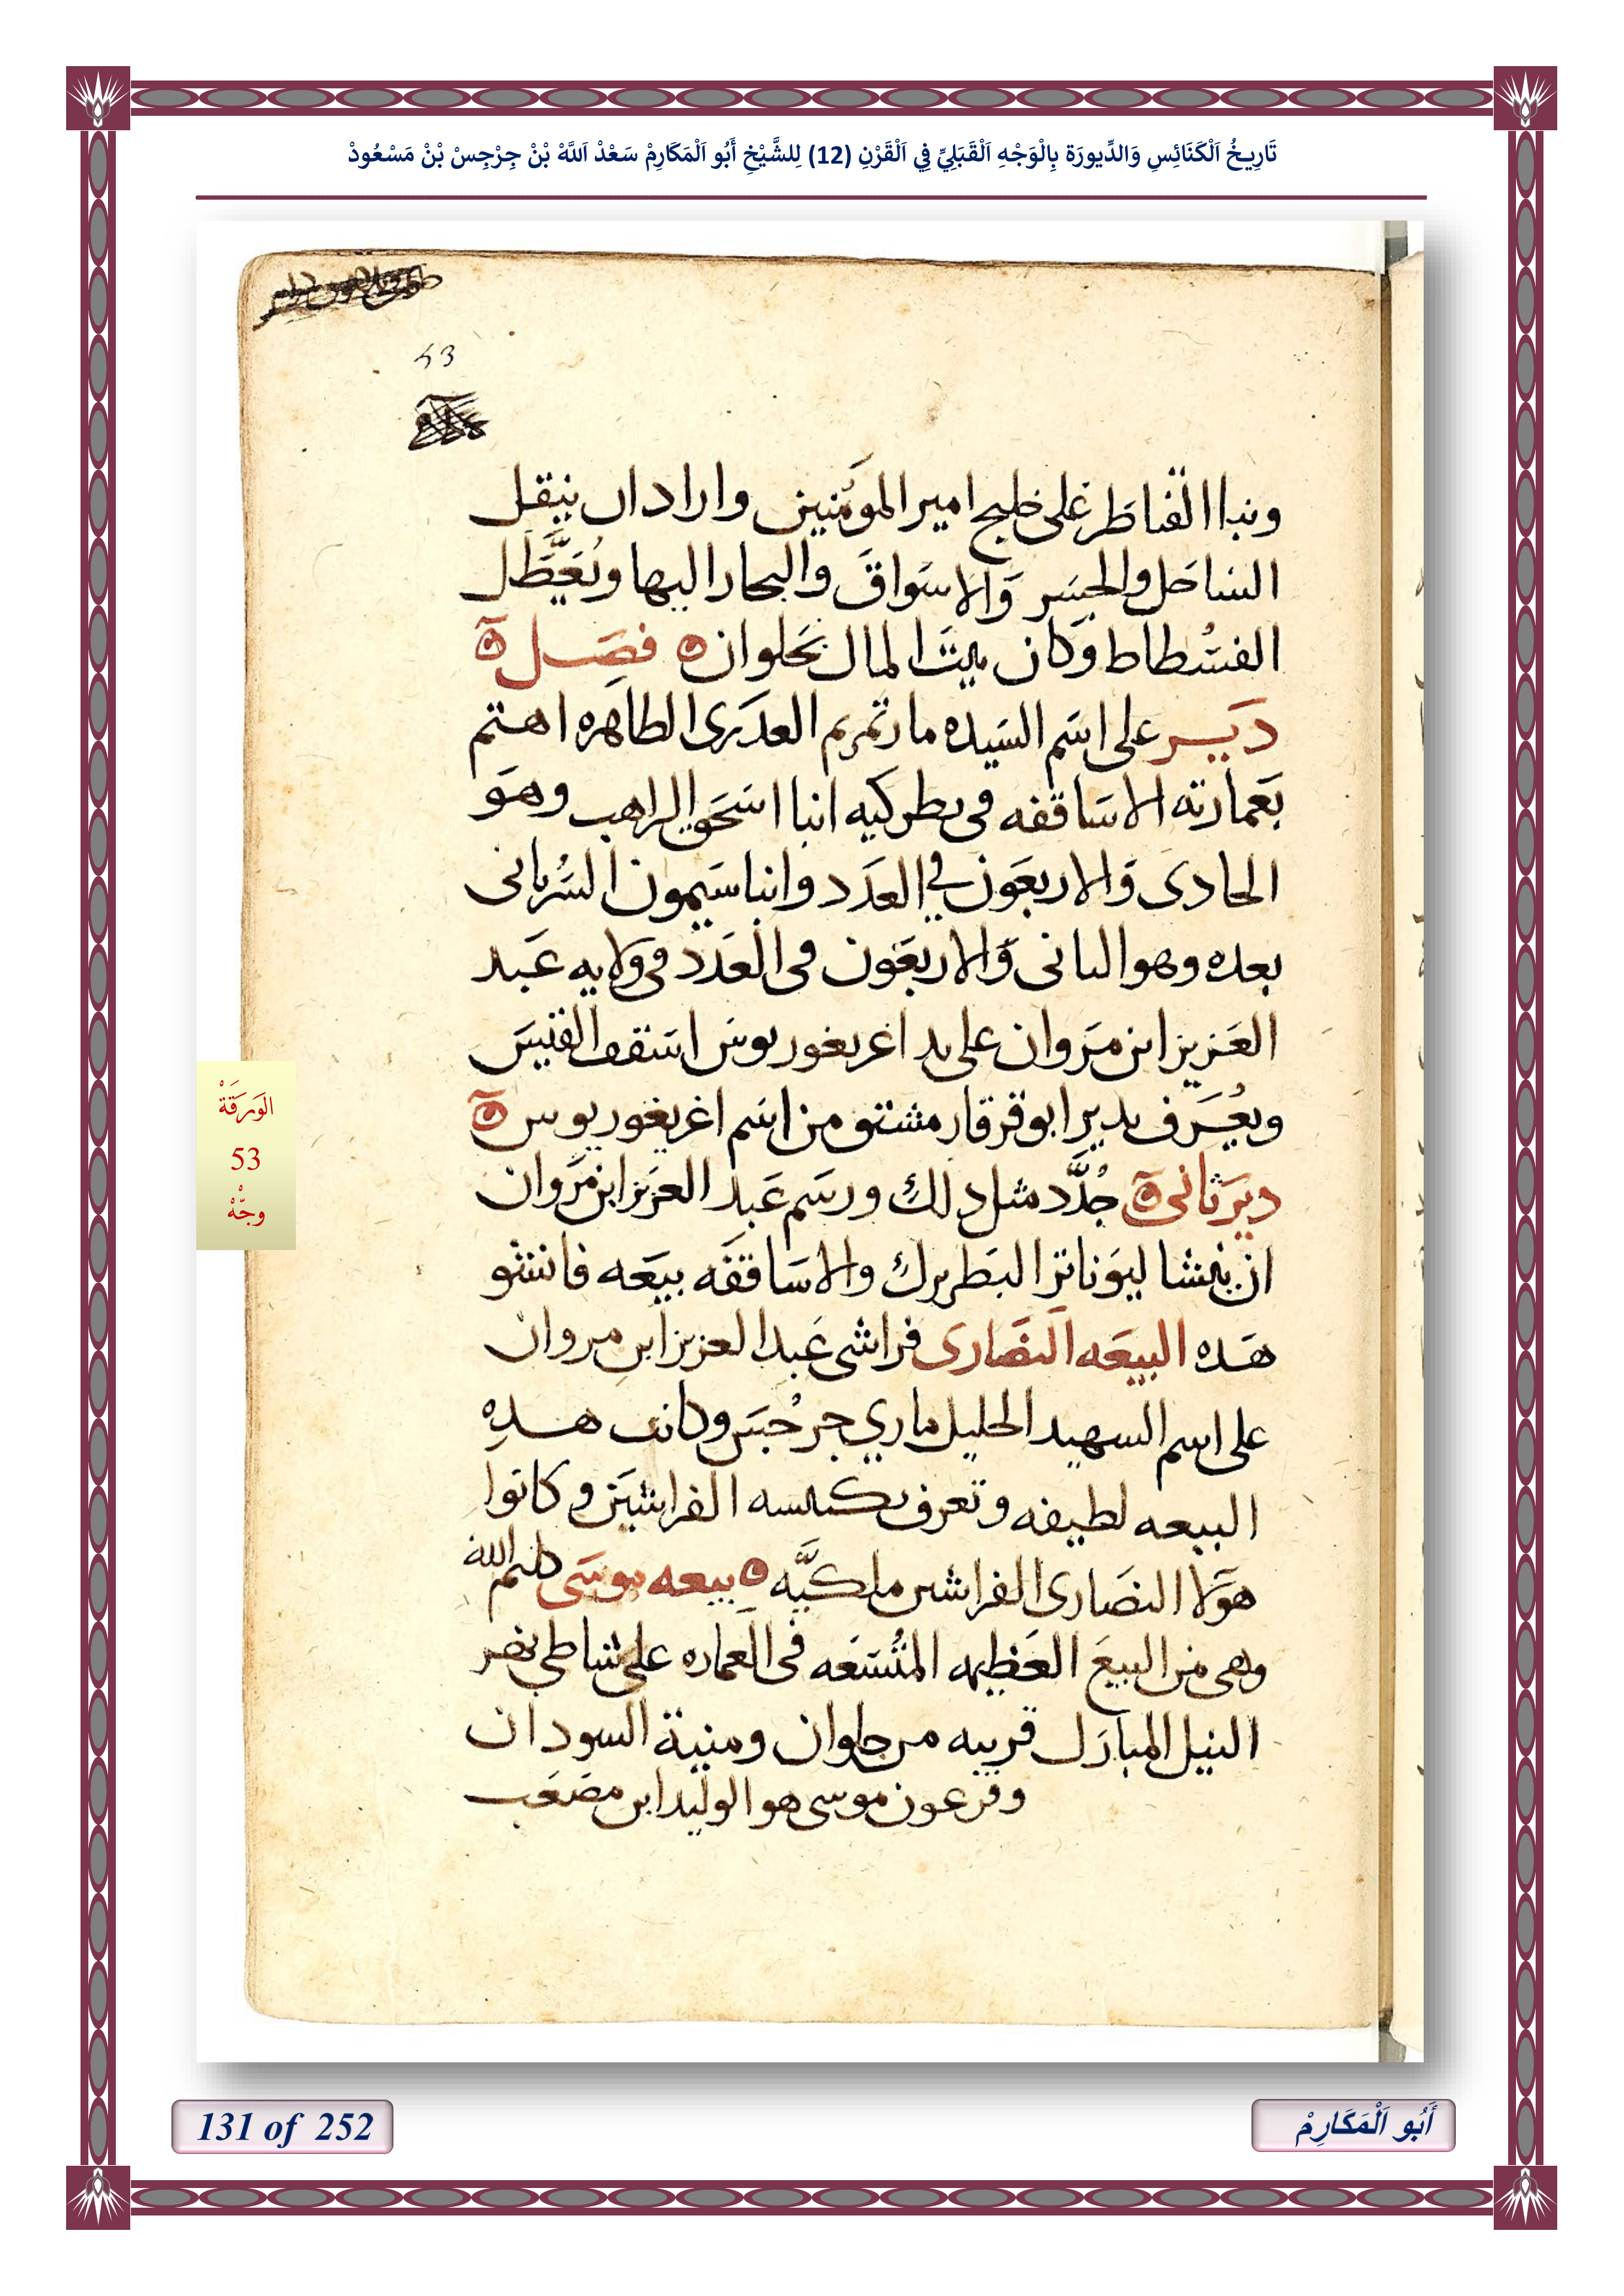 تَارِيخُ اَلْكَنَائِسِ وَالدِّيورَة بِالْوَجْهِ اَلْقَبَلِيِّ فِي اَلْقَرْنِ (12) لِلشَّيْخِ أَبُو اَلْمَكَارِمْ سَعْدْ اَللَّهْ بْنْ جِرْجِسْ بْنْ مَسْعُودْ
53
وبنا القناطر على خليج امير المومنين واراد ان ينقل
الساحل والجسر والاسواق والبحار اليها ويُعَطَّل
الفسطاط وكان بيت المال بحلوان فصل
ديــر على اسم السيده مارتمريم العدرى الطاهره اهتم
بعمارته الاساقفه فى بطركيه انبا اسحق الراهب وهو
الحادى والاربعون في العدد وانبا سيمون السُريانى
بعده وهو التانى والاربعون فى العدد فى ولايه عبد
العزيز ابن مروان على يد اغريغوريوس اسقف القيس
ويُعرف بدير ابو قرقار مشتق من اسم اغريغوريوس
دير ثانى جُدَّد مثل دلك ورسم عبد العزيز ابن مروان
ان ينشا ليوناتر البطريرك والاساقفه بيعه فانشو
هده البيعه النصارى فراشى عبد العزيز ابن مروان
على اسم السهيد الجليل ماري جرجيس وكانت هــدِه
البيعه لطيفه وتعرف بكنيسه الفراشين وكانوا
هولا النصارى الفراشين ملكيَّه بيعه موسى كليم الله
وهى من البيع العظيمه المتُسعه فى العماره على شاطى بحر
النيل المبارك قريبه من حلوان ومنية السودان
وفرعون موسى هو الوليد ابن مصعب
الوَرَقَةْ
53
وجّهْ
131 of 252
أَبُو اَلْمَكَارِمْ